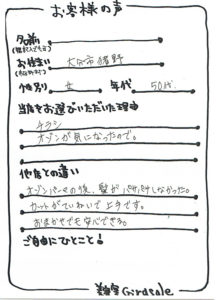 お客様の声
名前
お住まい 大分市猪野
性別 女 年代 50代
当店をお選びいただいた理由
チラシ
オゾンが気になったので。
他店との違い
オゾンパーマの後、髪がパサパサしなかった。
カットがていねいで上手です。
おまかせでも安心できる。
ご自由にひとこと!
美容室 Girasole